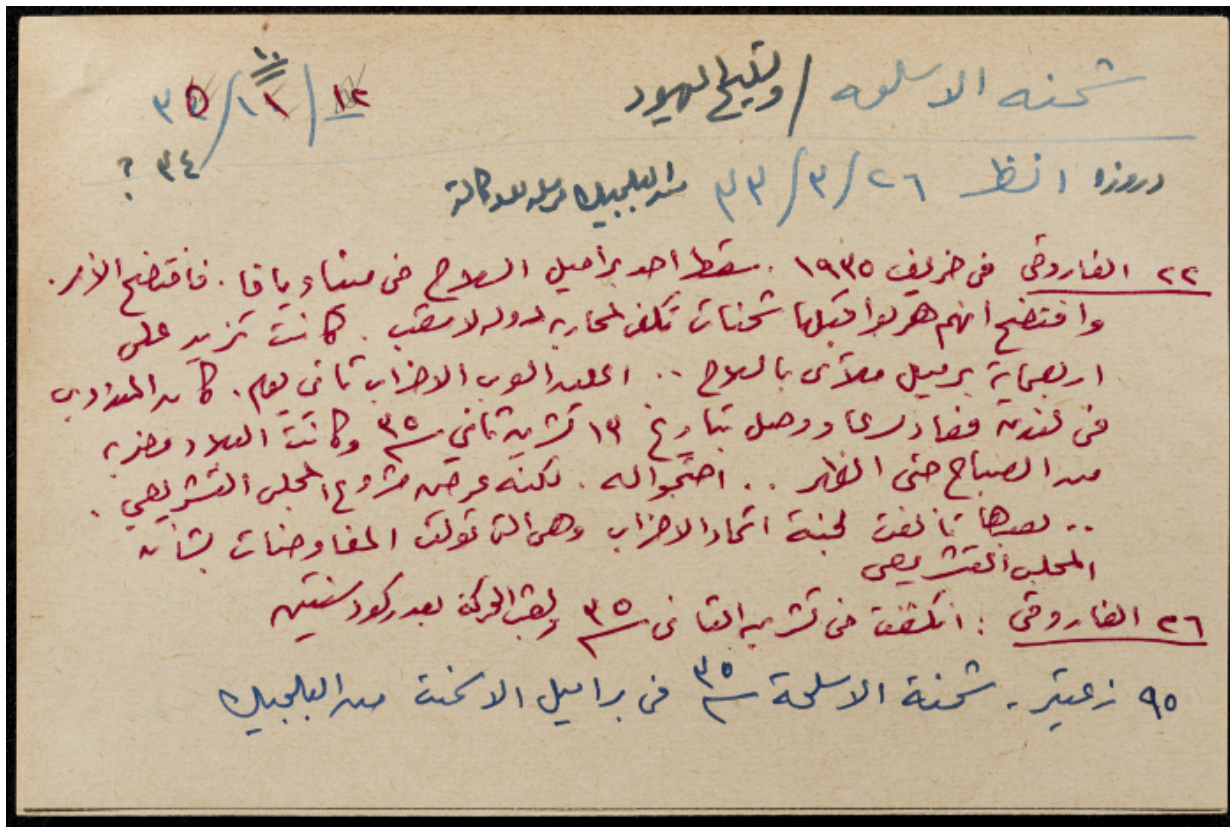 شحنه الاسلحه / وتسليح اليهود
١٢ / ١١ / ٣٥
١٠
٣٤ ?
دروزه انظر ٢٦/٣/٣٣ من البلجيك
٢٢ الفاروقي في خريف ١٩٣٥ . سقط احد براميل السلاح في ميناء يافا . فافتضح الأمر .
وافتضح انهم هربوا قبلها شحنات تكفي لمحاربه دوله لا شعب . كانت تزيد على
اربعماية برميل ملآى بالسلاح .. اعلن العرب الاضراب ثاني يوم . كان المندوب
في لندن فعاد سريعا ووصل بتاريخ ١٣ تشرين ثاني ٣٥ وكانت البلاد مضربه
من الصباح حتى الظهر .. احتجوا له . لكنه عرض مشروع المجلس التشريعي .
.. بعدها تألفت لجنة اتحاد الاحزاب وهي التي تولت المفاوضات بشأن
المجلس التشريعي
٢٦ الفاروقي : انكشفت في تشرين الثاني ٣٥ بعد ركود سنتين
٩٥ زعيتر . شحنة الاسلحة ٣٥ في براميل الاسمنت من البلجيك